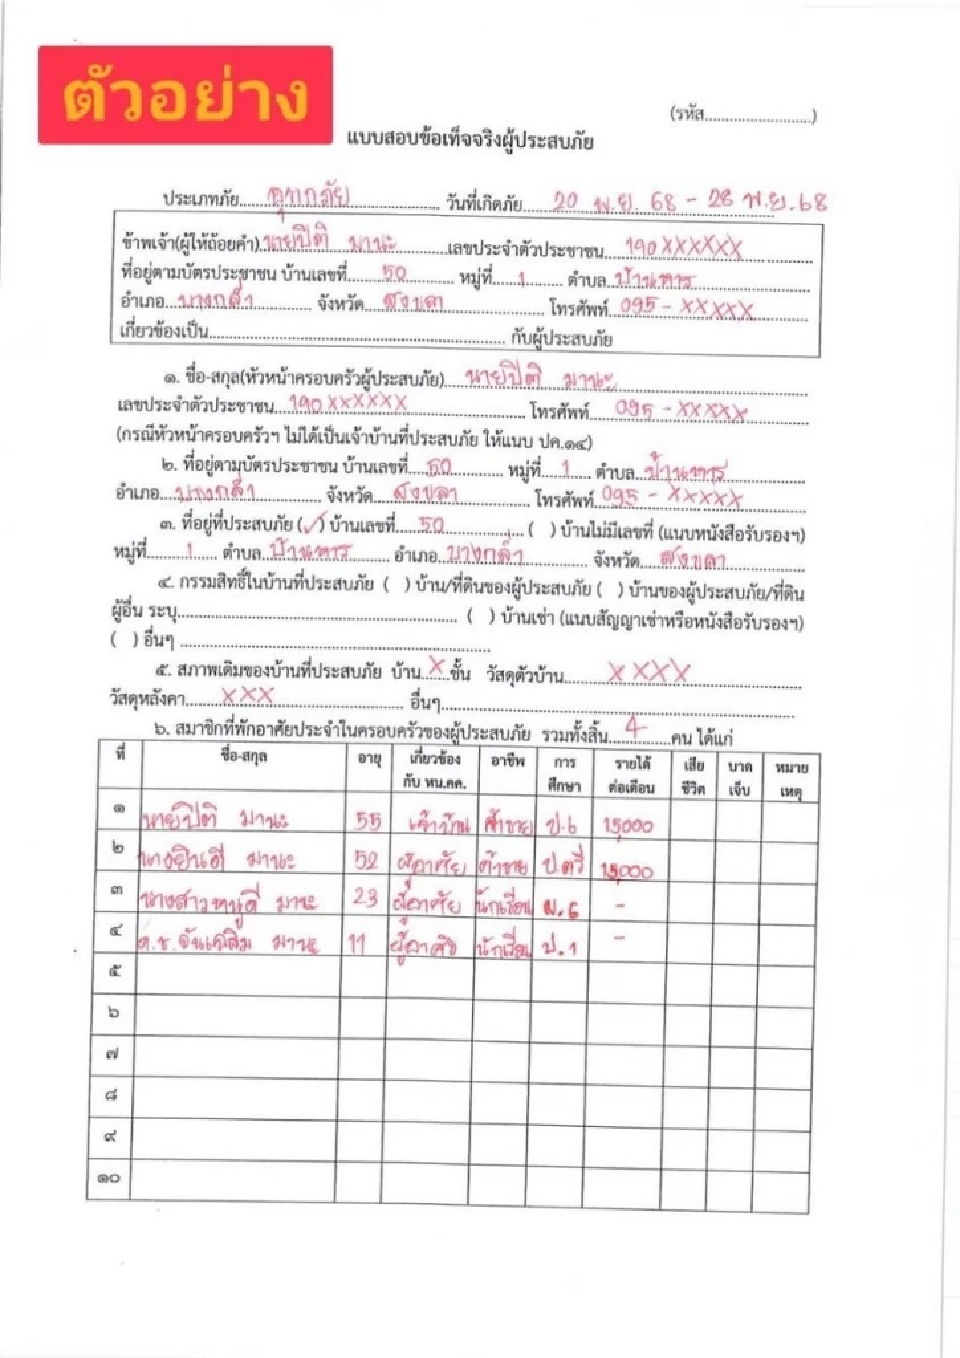 ตัวอย่าง
(รหัส...........................)
แบบสอบข้อเท็จจริงผู้ประสบภัย
ประเภทภัย.....อุทกภัย.................... วันที่เกิดภัย.....20 พ.ย. 68 - 28 พ.ย. 68
ข้าพเจ้า(ผู้ให้ถ้อยคำ).นายปิติ มานะ............เลขประจำตัวประชาชน....190XXXXXX...........
ที่อยู่ตามบัตรประชาชน บ้านเลขที่.......50........... หมู่ที่.......1........ ตำบล..บ้านหาร...........
อำเภอ...บางกล่ำ............. จังหวัด....สงขลา.................. โทรศัพท์...095-XXXXX............
เกี่ยวข้องเป็น........................................................................ กับผู้ประสบภัย
๑. ชื่อ-สกุล(หัวหน้าครอบครัวผู้ประสบภัย).....นายปิติ มานะ.................................
เลขประจำตัวประชาชน....190XXXXXX............................. โทรศัพท์.....095-XXXXX............
(กรณีหัวหน้าครอบครัวฯ ไม่ได้เป็นเจ้าบ้านที่ประสบภัย ให้แนบ ปค.๑๔)
๒. ที่อยู่ตามบัตรประชาชน บ้านเลขที่.....50............. หมู่ที่.....1...... ตำบล...บ้านหาร........
อำเภอ....บางกล่ำ................ จังหวัด.....สงขลา.................. โทรศัพท์..095-XXXXX............
๓. ที่อยู่ที่ประสบภัย (✓) บ้านเลขที่......50.................... ( ) บ้านไม่มีเลขที่ (แนบหนังสือรับรองฯ)
หมู่ที่.........1....... ตำบล...บ้านหาร.......... อำเภอ...บางกล่ำ................. จังหวัด.....สงขลา...............
๔. กรรมสิทธิ์ในบ้านที่ประสบภัย ( ) บ้าน/ที่ดินของผู้ประสบภัย ( ) บ้านของผู้ประสบภัย/ที่ดิน
ผู้อื่น ระบุ..................................................................... ( ) บ้านเช่า (แนบสัญญาเช่าหรือหนังสือรับรองฯ)
( ) อื่นๆ ..............................................................................
๕. สภาพเดิมของบ้านที่ประสบภัย บ้าน...X...ชั้น วัสดุตัวบ้าน..........XXXX........................
วัสดุหลังคา........XXX................................. อื่นๆ...........................................................................
๖. สมาชิกที่พักอาศัยประจำในครอบครัวของผู้ประสบภัย รวมทั้งสิ้น....4...........คน ได้แก่
ที่ ชื่อ-สกุล อายุ เกี่ยวข้องกับ หน.คค. อาชีพ การศึกษา รายได้ต่อเดือน เสียชีวิต บาดเจ็บ หมายเหตุ
๑ นายปิติ มานะ 55 เจ้าบ้าน ค้าขาย ป.6 15,000
๒ นางยินดี มานะ 52 ผู้อาศัย ค้าขาย ป.ตรี 15,000
๓ นางสาวหนูดี มานะ 23 ผู้อาศัย นักเรียน ม.6 -
๔ ด.ช. มานะ 11 ผู้อาศัย นักเรียน ป.1 -
๕
๖
๗
๘
๙
๑๐